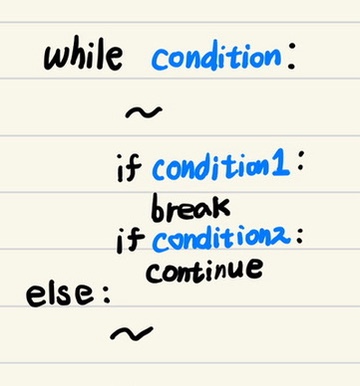 while condition:
~
if condition1:
break
if condition2:
continue
else:
~